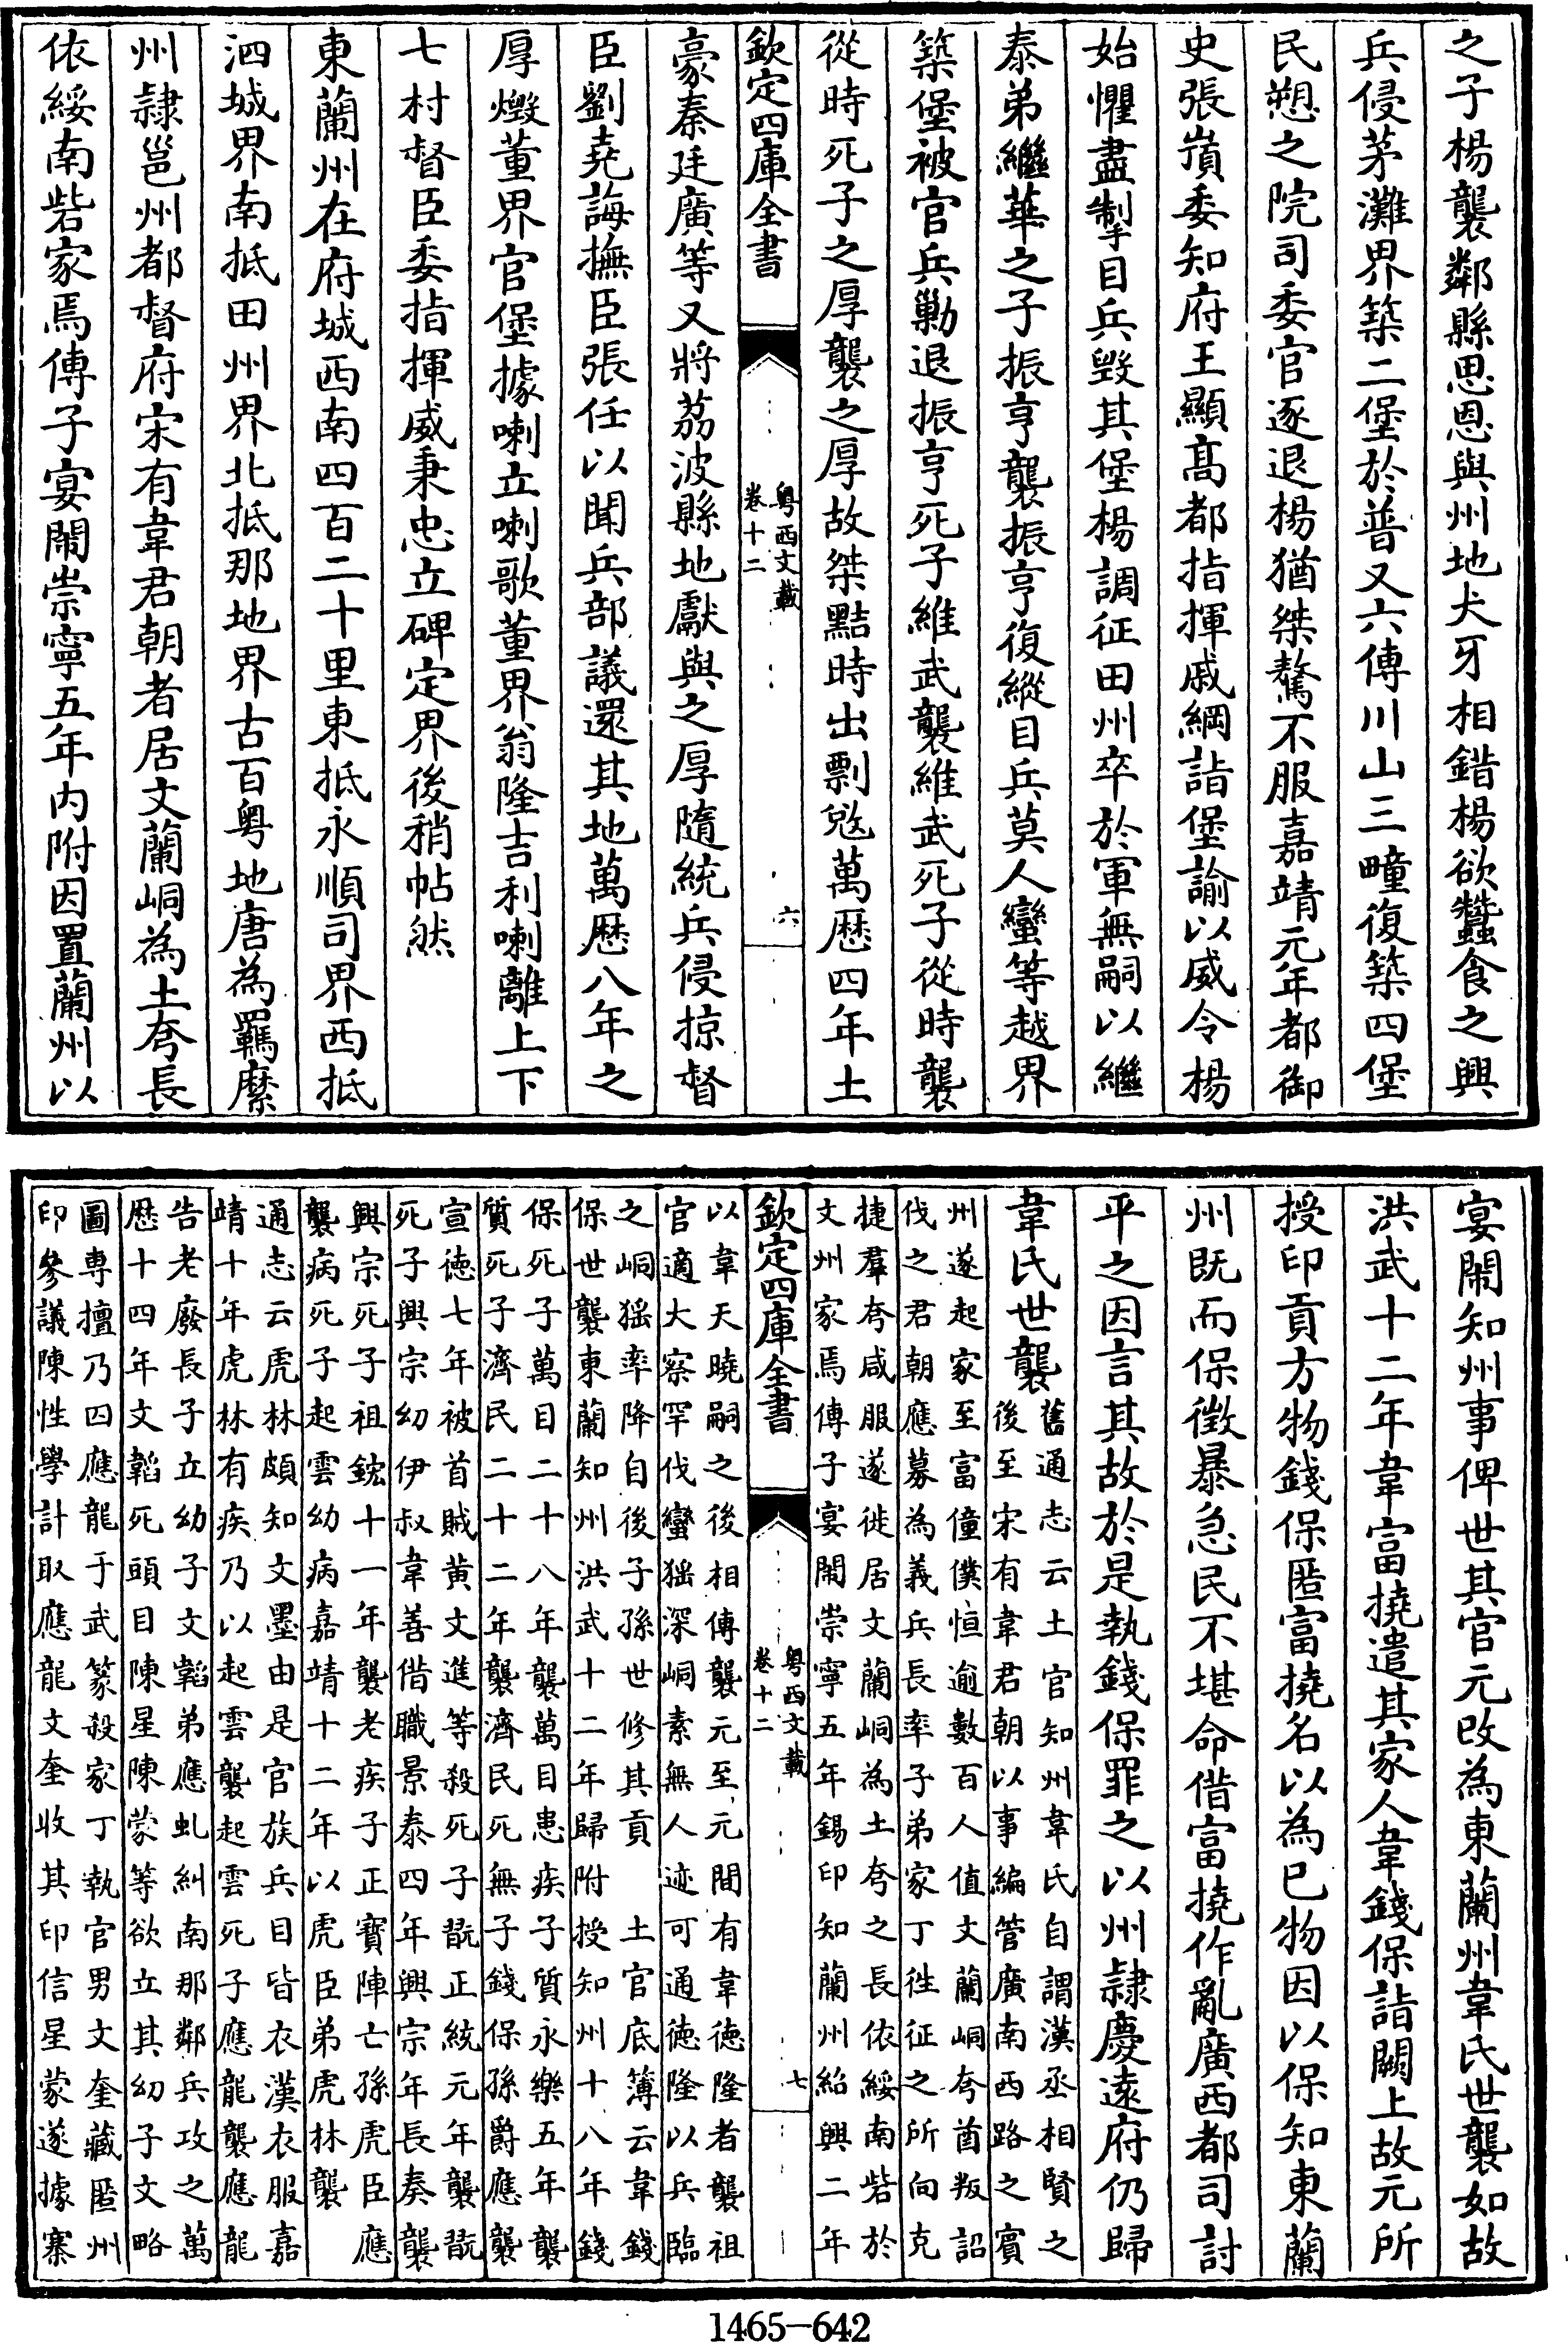 之子楊襲鄰縣思恩與州地犬牙相錯楊欲蠶食之興
兵侵茅灘界築二堡於普又六傳川山三疃復築四堡
民愬之院司委官逐退楊猶桀驁不服嘉靖元年都御
史張嵿委知府王顯髙都指揮戚綱詣堡諭以威令楊
始懼盡掣目兵毀其堡楊調征田州卒於軍無嗣以繼
泰弟繼華之子振亨襲振亨復縱目兵莫人蠻等越界
築堡被官兵勦退振亨死子維武襲維武死子從時襲
從時死子之厚襲之厚故桀黠時出剽尅萬厯四年土
欽定四庫全書
粤西文載
卷十二
六
豪秦廷廣等又將荔波縣地獻與之厚隨統兵侵掠督
臣劉堯誨撫臣張任以聞兵部議還其地萬厯八年之
厚燬董界官堡據喇立喇歌董界翁隆吉利喇離上下
七村督臣委指揮威秉忠立碑定界後稍帖然
東蘭州在府城西南四百二十里東抵永順司界西抵
泗城界南抵田州界北抵那地界古百粤地唐為羈縻
州隷邕州都督府宋有韋君朝者居文蘭峒為土夸長
依綏南砦家焉傳子宴閙崇寧五年内附因置蘭州以
宴閙知州事俾世其官元改為東蘭州韋氏世襲如故
洪武十二年韋富撓遣其家人韋錢保詣闕上故元所
授印貢方物錢保匿富撓名以為已物因以保知東蘭
州既而保徴暴急民不堪命借富撓作亂廣西都司討
平之因言其故於是執錢保罪之以州隷慶遠府仍歸
韋氏世襲
舊通志云土官知州韋氏自謂漢丞相賢之
後至宋有韋君朝以事編管廣南西路之賓
州遂起家至富僮僕恒逾數百人值文蘭峒夸酋叛詔
伐之君朝應募為義兵長率子弟家丁徃征之所向克
捷羣夸咸服遂徙居文蘭峒為土夸之長依綏南砦於
文州家焉傳子宴閙崇寧五年錫印知蘭州紹興二年
欽定四庫全書
粤西文載
卷十二
七
以韋天曉嗣之後相傳襲元至元間有韋徳隆者襲祖
官適大察罕伐蠻猺深峒素無人迹可通徳隆以兵臨
之峒猺率降自後子孫世修其貢 土官底簿云韋錢
保世襲東蘭知州洪武十二年歸附授知州十八年錢
保死子萬目二十八年襲萬目患疾子質永樂五年襲
質死子濟民二十二年襲濟民死無子錢保孫爵應襲
宣徳七年被首賊黄文進等殺死子翫正統元年襲翫
死子興宗幼伊叔韋善借職景泰四年興宗年長奏襲
興宗死子祖鋐十一年襲老疾子正寳陣亡孫虎臣應
襲病死子起雲幼病嘉靖十二年以虎臣弟虎林襲
通志云虎林頗知文墨由是官族兵目皆衣漢衣服嘉
靖十年虎林有疾乃以起雲襲起雲死子應龍襲應龍
告老廢長子立幼子文韜弟應虬糾南那鄰兵攻之萬
厯十四年文韜死頭目陳星陳蒙等欲立其幼子文略
圖專擅乃四應龍于武篆殺家丁執官男文奎藏匿州
印參議陳性學計取應龍文奎收其印信星蒙遂據寨
1465-642